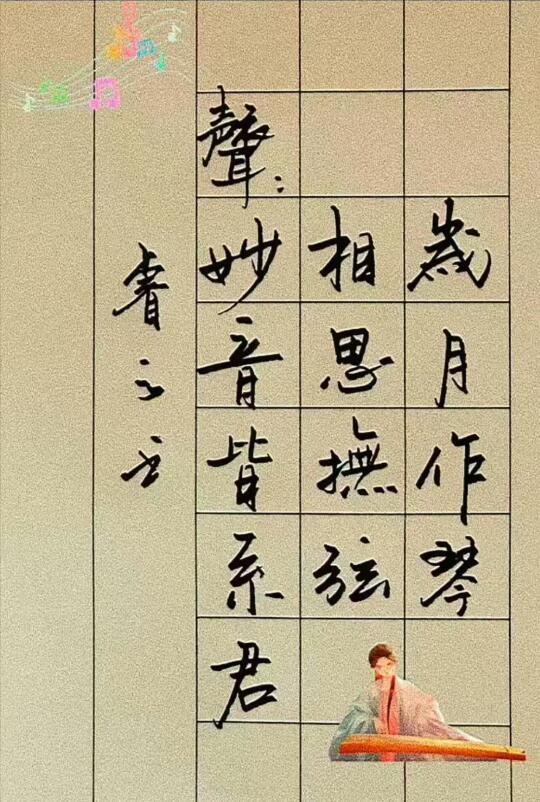 歲月作琴
相思撫弦
聲：妙音皆系君
睿之玉